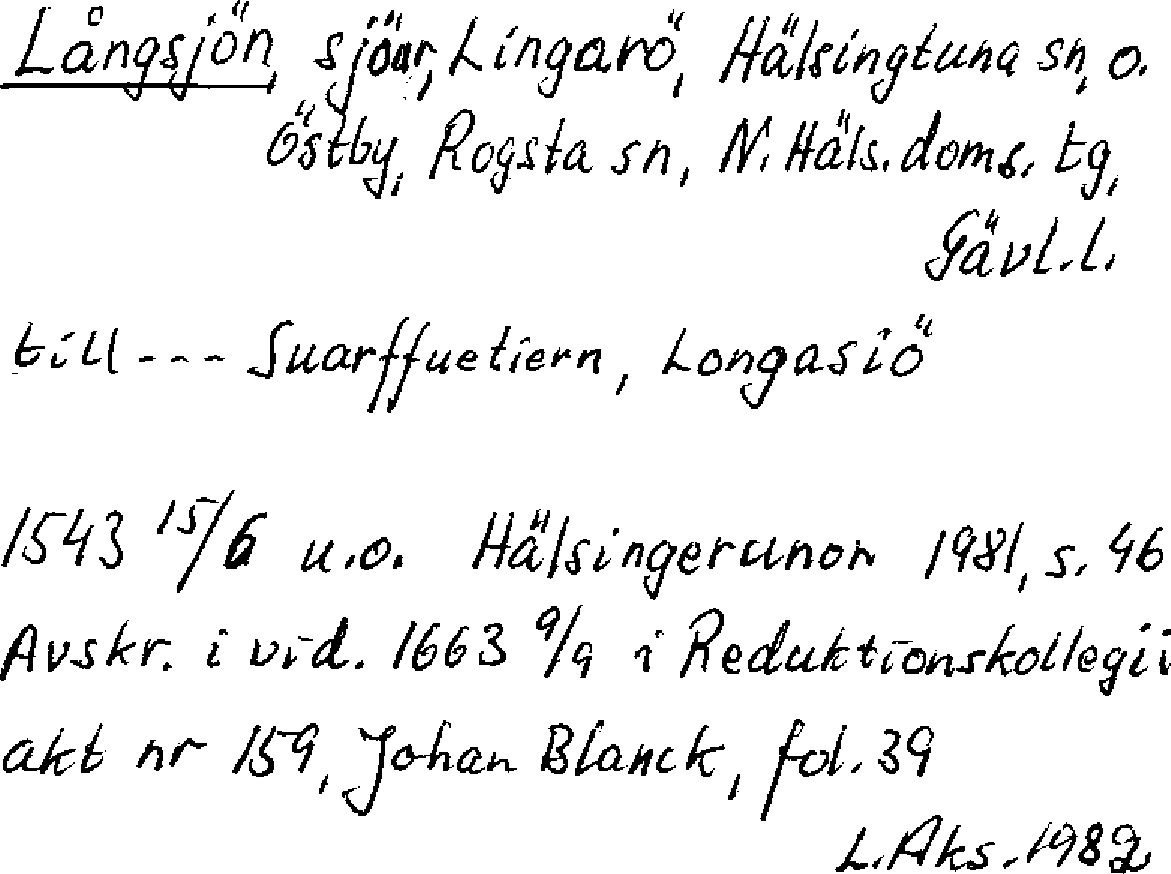 Långsjön, sjöar, Lingarö, Hälsingtuna sn, o.
Östby, Rogsta sn, N. Häls. doms. tg,
Gävl. l.
till --- Suarffuetiern, Longasiö
1543 15/6 u.o. Hälsingerunor 1981, s. 46
Avskr. i vid. 1663 9/9 i Reduktionskollegii
akt nr 159, Johan Blanck, fol. 39
L. Aks. 1982